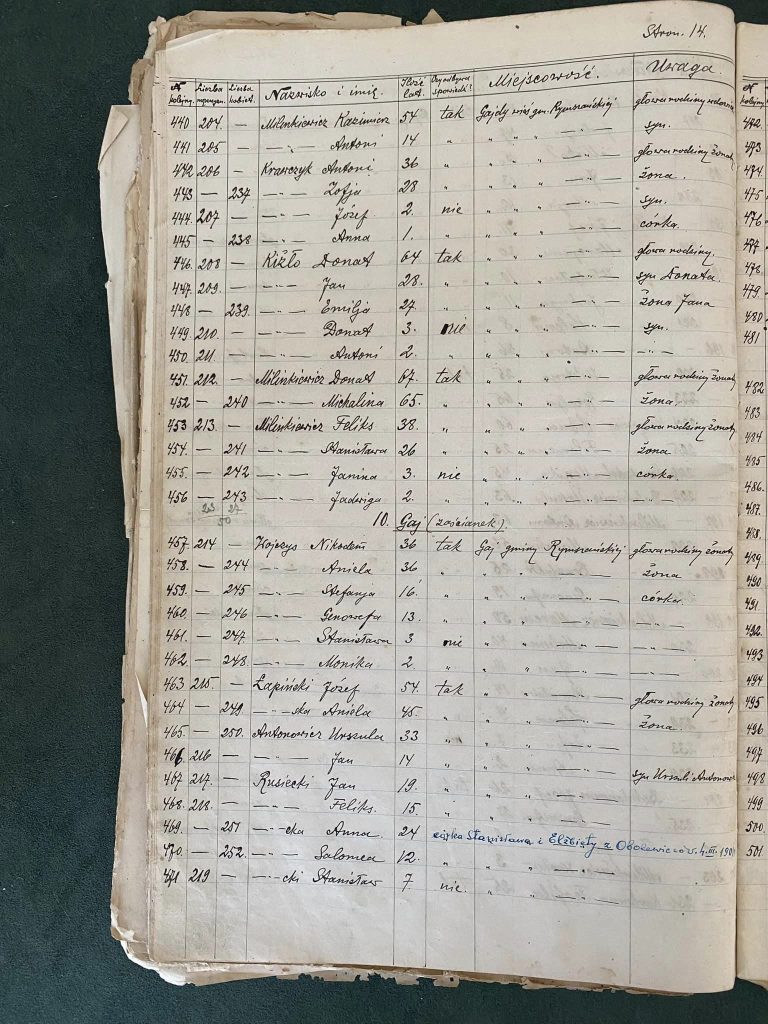 Stron. 14.
N kolejny. Liczba mężczyzn. Liczba kobiet. Nazwisko i imię. Ilość lat. Czy odbywa spowiedź? Miejscowość. Uwaga.
440 204. — Milinkiewicz Kazimierz 54 tak Gajdy wieś gm. Rymszańskiej głowa rodziny
441 205 — —"— Antoni 14 " " " " —"— syn.
442 206 — Krawczyk Antoni 36 " " " " —"— głowa rodziny żonaty
443 — 237 —"— Zofja 28 " " " " —"— żona.
444. 207 — —"— Józef 2. nie " " " —"— syn.
445 — 238 —"— Anna 1. " " " " —"— córka.
446. 208 — Kiżło Donat 64 tak " " " —"— głowa rodziny.
447. 209. — —"— Jan 28. " " " " —"— syn Donata.
448 — 239. —"— Emilja 27 " " " " —"— żona Jana
449. 210. — —"— Donat 3. nie " " " —"— syn.
450. 211. — —"— Antoni 2. " " " " —"— —"—
451. 212. — Milinkiewicz Donat 67. tak " " " —"— głowa rodziny żonaty
452 — 240 —"— Michalina 65. " " " " —"— żona.
453 213 — Milinkiewicz Feliks 38. " " " " —"— głowa rodziny żonaty
454. — 241 —"— Stanisława 26 " " " " —"— żona.
455. — 242 —"— Janina 3. nie " " " —"— córka.
456 — 243 —"— Jadwiga 2. " " " " —"— —"—
23 27
50
10. Gaj (zaścianek).
457. 214 — Kojczys Nikodem 36 tak Gaj gminy Rymszańskiej głowa rodziny żonaty
458. — 244 —"— Aniela 36 " " " —"— żona
459. — 245 —"— Stefanja 16. " " " —"— córka.
460. — 246 —"— Genowefa 13. " " " —"— —"—
461. — 247. —"— Stanisława 3 nie " " —"— —"—
462 — 248. —"— Monika 2. " " " —"— —"—
463 215. — Łapiński Józef 54. tak " " —"— głowa rodziny żonaty
464 — 249 —"—ska Aniela 45. " " " —"— żona.
465. — 250. Antonowicz Urszula 33 " " " —"—
466 216 — —"— Jan 14 " " " —"— syn Urszuli
467 217. — Rusiecki Jan 19. " " " —"—
468. 218. — —"— Feliks. 15. " " " —"—
469. — 251 —"—cka Anna. 24 córka Stanisława i Elżbiety z
470. — 252. —"— Salomea 12. " " " —"—
471 219 —"—cki Stanisław 7 nie. " " —"—
472.
473
474.
475
476
477.
478.
479.
480
481
482.
483
484
485
486.
487.
488.
489
490
491.
492.
493
494
495
496
497
498
499
500.
501.